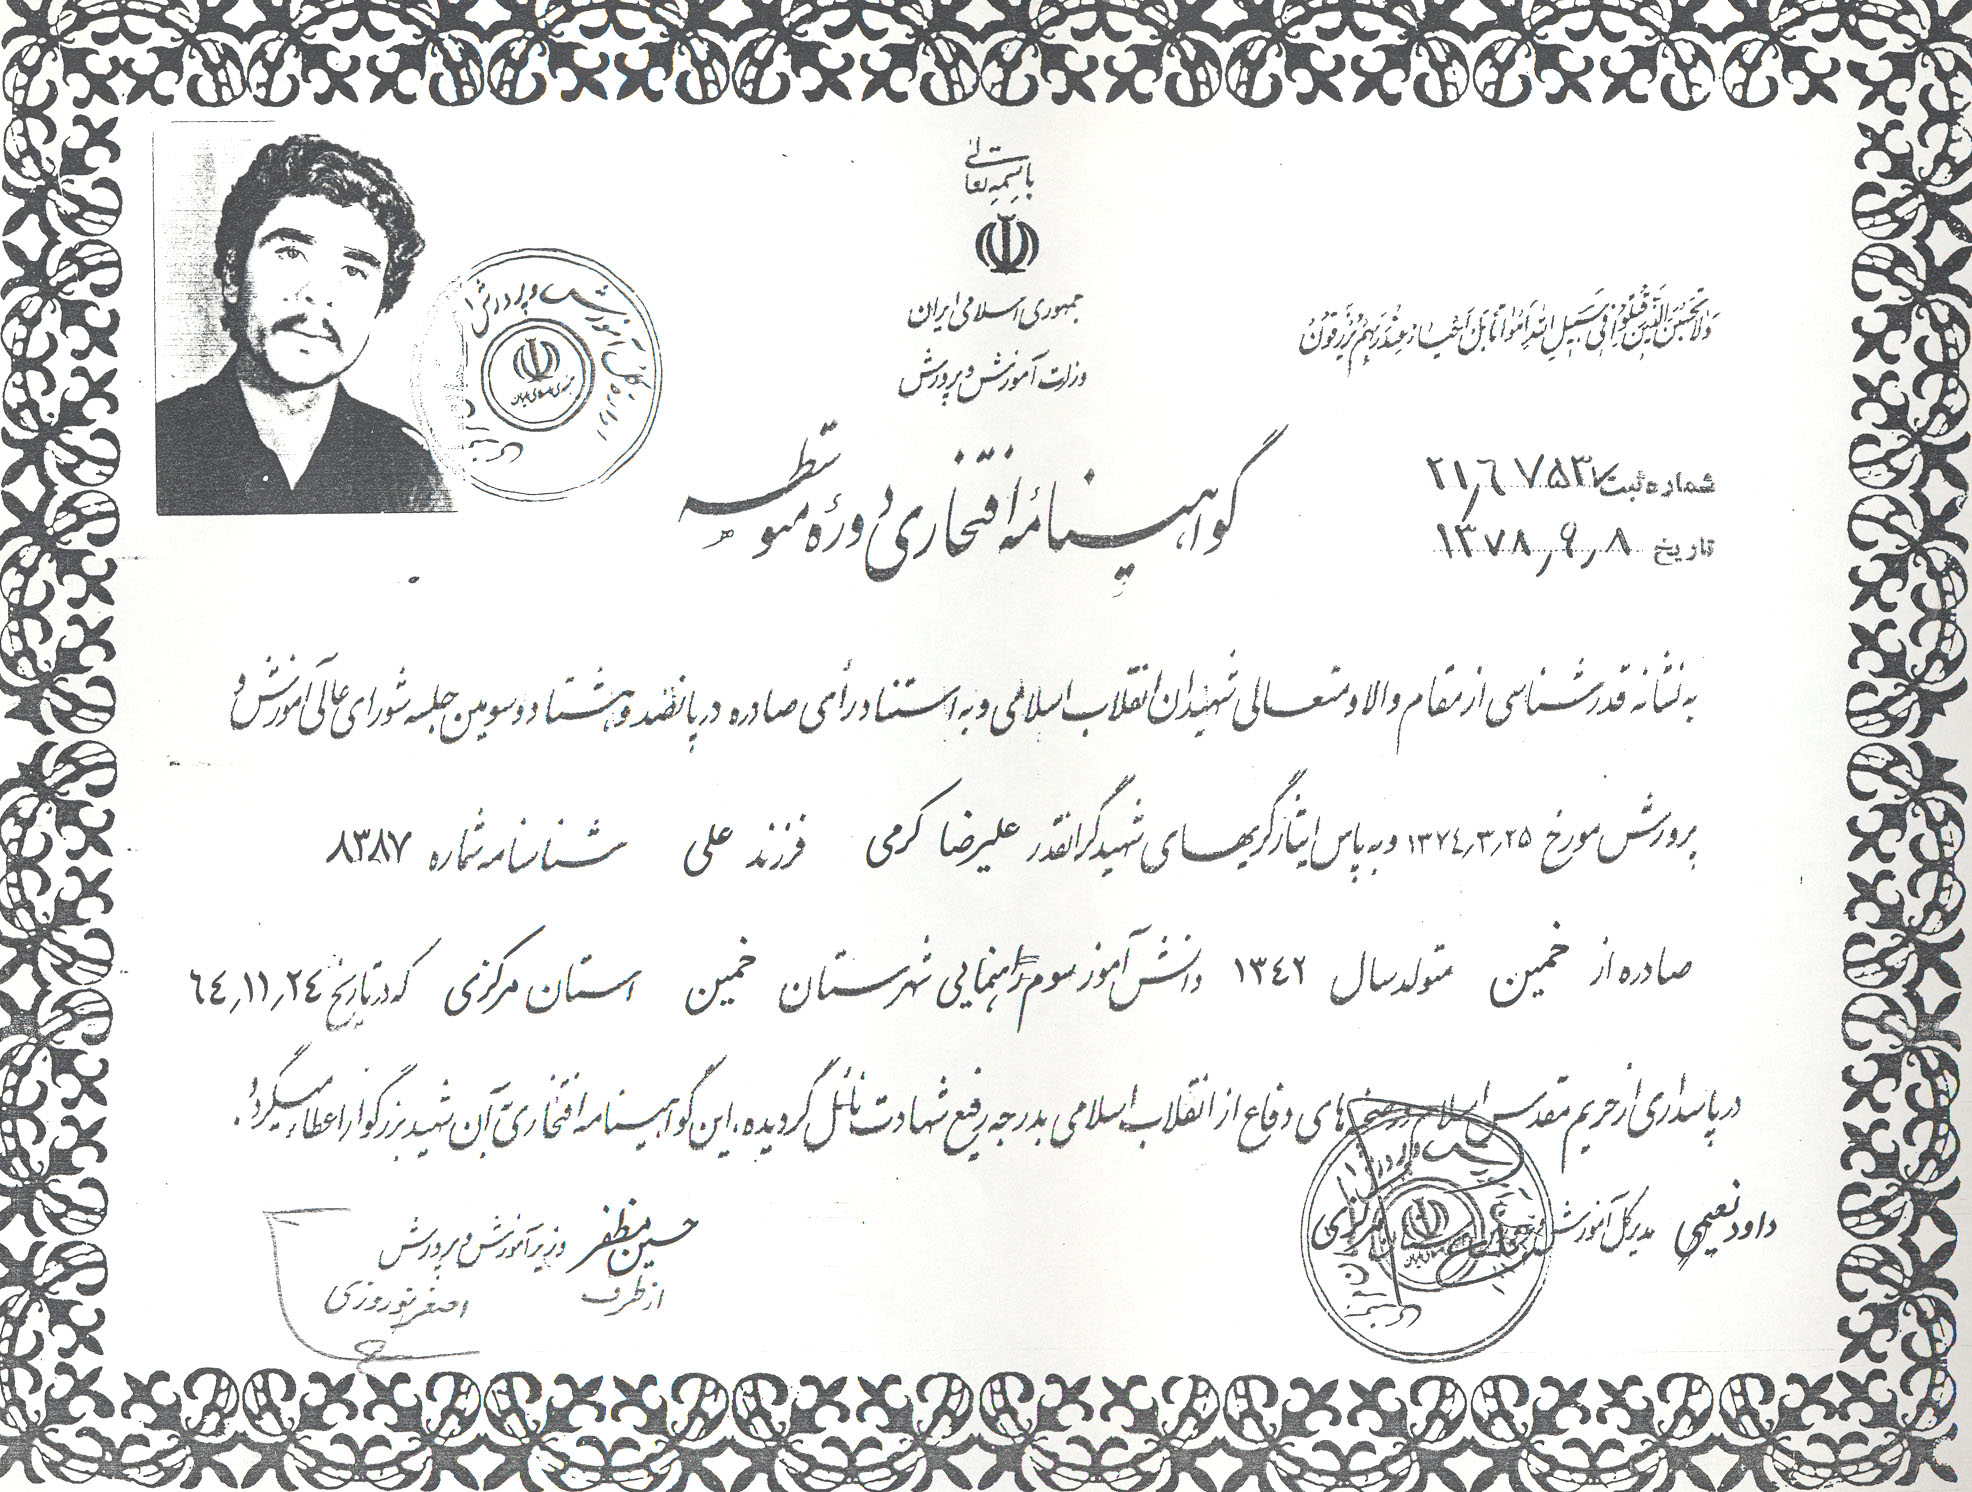 باسمه تعالی
جمهوری اسلامی ایران
وزارت آموزش و پرورش
ولا تحسبن الذین قتلوا فی سبیل الله امواتا بل احیاء عند ربهم یرزقون
شماره ثبت
تاریخ ۱۳۷۸٫۹٫۸
گواهینامهٔ افتخاری دورهٔ متوسطه
به نشانه قدرشناسی از مقام والا و متعالی شهیدان انقلاب اسلامی و به استناد رأی صادره در پانصد و هشتاد و سومین جلسه شورای عالی آموزش و
پرورش مورخ ۱۳۷٤٫۳٫۲۵ و به پاس ایثارگریهای شهید گرانقدر علیرضا کرمی فرزند علی شناسنامه شماره ۸۳۸۷
صادره از خمین متولد سال ۱۳٤۲ دانش آموز سوم راهنمایی شهرستان خمین استان مرکزی که در تاریخ ٦٤٫۱۱٫۲٤
در پاسداری از حریم مقدس اسلام در صحنه های دفاع از انقلاب اسلامی بدرجه رفیع شهادت نائل گردیده، این گواهینامه افتخاری به آن شهید بزرگوار اعطاء میگردد.
داود نعیمی مدیرکل آموزش و پرورش استان مرکزی
حسین مظفر وزیر آموزش و پرورش
از طرف اصغر نوروزی
اداره کل آموزش و پرورش
جمهوری اسلامی ایران